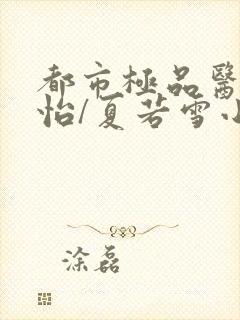 都市極品醫
怡/夏若雪小
涂磊